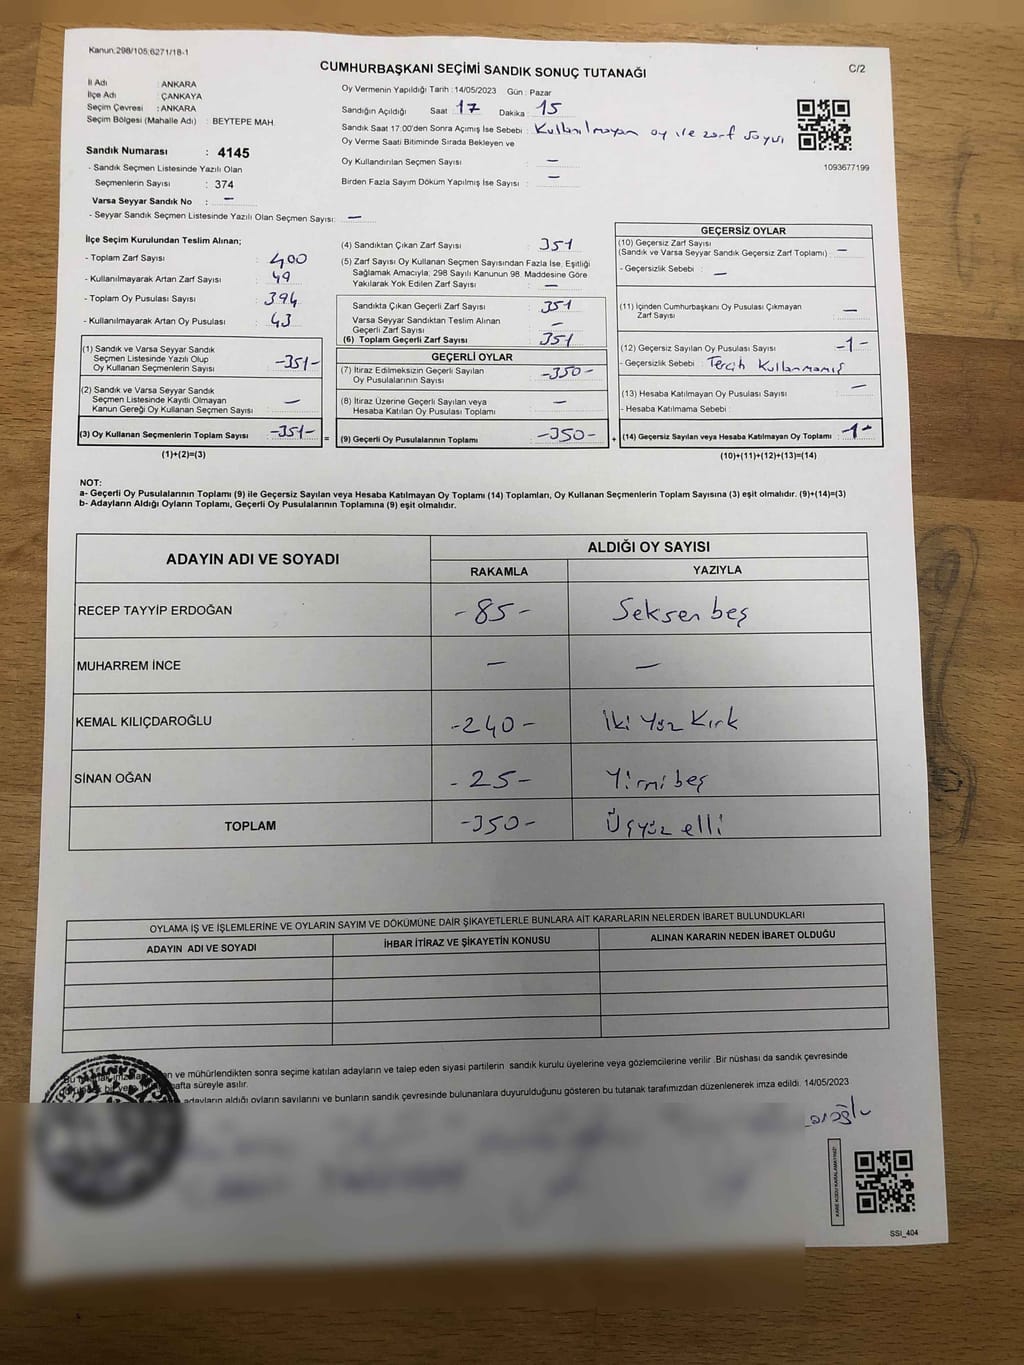 Kanun:298/105,6271/18-1
CUMHURBAŞKANI SEÇİMİ SANDIK SONUÇ TUTANAĞI
C/2
İl Adı : ANKARA
İlçe Adı : ÇANKAYA
Seçim Çevresi : ANKARA
Seçim Bölgesi (Mahalle Adı) : BEYTEPE MAH.
Sandık Numarası : 4145
- Sandık Seçmen Listesinde Yazılı Olan
Seçmenlerin Sayısı : 374
Varsa Seyyar Sandık No : –
- Seyyar Sandık Seçmen Listesinde Yazılı Olan Seçmen Sayısı: –
Oy Vermenin Yapıldığı Tarih : 14/05/2023 Gün : Pazar
Sandığın Açıldığı Saat : 17 Dakika : 15
Sandık Saat 17:00'den Sonra Açımış İse Sebebi : Kullanılmayan oy ile zarf sayısı
Oy Verme Saati Bitiminde Sırada Bekleyen ve
Oy Kullandırılan Seçmen Sayısı : –
Birden Fazla Sayım Döküm Yapılmış İse Sayısı : –
1093677199
İlçe Seçim Kurulundan Teslim Alınan;
- Toplam Zarf Sayısı : 400
- Kullanılmayarak Artan Zarf Sayısı : 49
- Toplam Oy Pusulası Sayısı : 394
- Kullanılmayarak Artan Oy Pusulası : 43
(1) Sandık ve Varsa Seyyar Sandık
Seçmen Listesinde Yazılı Olup
Oy Kullanan Seçmenlerin Sayısı : -351-
(2) Sandık ve Varsa Seyyar Sandık
Seçmen Listesinde Kayıtlı Olmayan
Kanun Gereği Oy Kullanan Seçmen Sayısı : –
(3) Oy Kullanan Seçmenlerin Toplam Sayısı : -351- =
(1)+(2)=(3)
(4) Sandıktan Çıkan Zarf Sayısı : 351
(5) Zarf Sayısı Oy Kullanan Seçmen Sayısından Fazla İse, Eşitliği
Sağlamak Amacıyla; 298 Sayılı Kanunun 98. Maddesine Göre
Yakılarak Yok Edilen Zarf Sayısı : –
Sandıkta Çıkan Geçerli Zarf Sayısı : 351
Varsa Seyyar Sandıktan Teslim Alınan
Geçerli Zarf Sayısı : –
(6) Toplam Geçerli Zarf Sayısı : 351
GEÇERLİ OYLAR
(7) İtiraz Edilmeksizin Geçerli Sayılan
Oy Pusulalarının Sayısı : -350-
(8) İtiraz Üzerine Geçerli Sayılan veya
Hesaba Katılan Oy Pusulası Toplamı : –
(9) Geçerli Oy Pusulalarının Toplamı : -350- +
GEÇERSİZ OYLAR
(10) Geçersiz Zarf Sayısı
(Sandık ve Varsa Seyyar Sandık Geçersiz Zarf Toplamı) : –
- Geçersizlik Sebebi : –
(11) İçinden Cumhurbaşkanı Oy Pusulası Çıkmayan
Zarf Sayısı : –
(12) Geçersiz Sayılan Oy Pusulası Sayısı : -1-
- Geçersizlik Sebebi : Tercih Kullanmamış
(13) Hesaba Katılmayan Oy Pusulası Sayısı : –
- Hesaba Katılmama Sebebi :
(14) Geçersiz Sayılan veya Hesaba Katılmayan Oy Toplamı : -1-
(10)+(11)+(12)+(13)=(14)
NOT:
a- Geçerli Oy Pusulalarının Toplamı (9) ile Geçersiz Sayılan veya Hesaba Katılmayan Oy Toplamı (14) Toplamları, Oy Kullanan Seçmenlerin Toplam Sayısına (3) eşit olmalıdır. (9)+(14)=(3)
b- Adayların Aldığı Oyların Toplamı, Geçerli Oy Pusulalarının Toplamına (9) eşit olmalıdır.
ADAYIN ADI VE SOYADI
ALDIĞI OY SAYISI
RAKAMLA YAZIYLA
RECEP TAYYİP ERDOĞAN -85- Seksen beş
MUHARREM İNCE – –
KEMAL KILIÇDAROĞLU -240- İki Yüz Kırk
SİNAN OĞAN -25- Yirmi beş
TOPLAM -350- Üçyüz elli
OYLAMA İŞ VE İŞLEMLERİNE VE OYLARIN SAYIM VE DÖKÜMÜNE DAİR ŞİKAYETLERLE BUNLARA AİT KARARLARIN NELERDEN İBARET BULUNDUKLARI
ADAYIN ADI VE SOYADI İHBAR İTİRAZ VE ŞİKAYETİN KONUSU ALINAN KARARIN NEDEN İBARET OLDUĞU
ve mühürlendikten sonra seçime katılan adayların ve talep eden siyasi partilerin sandık kurulu üyelerine veya gözlemcilerine verilir. Bir nüshası da sandık çevresinde
hafta süreyle asılır.
adayların aldığı oyların sayılarını ve bunların sandık çevresinde bulunanlara duyurulduğunu gösteren bu tutanak tarafımızdan düzenlenerek imza edildi. 14/05/2023
KARE KODU KARALAMAYINIZ!
SSİ_404